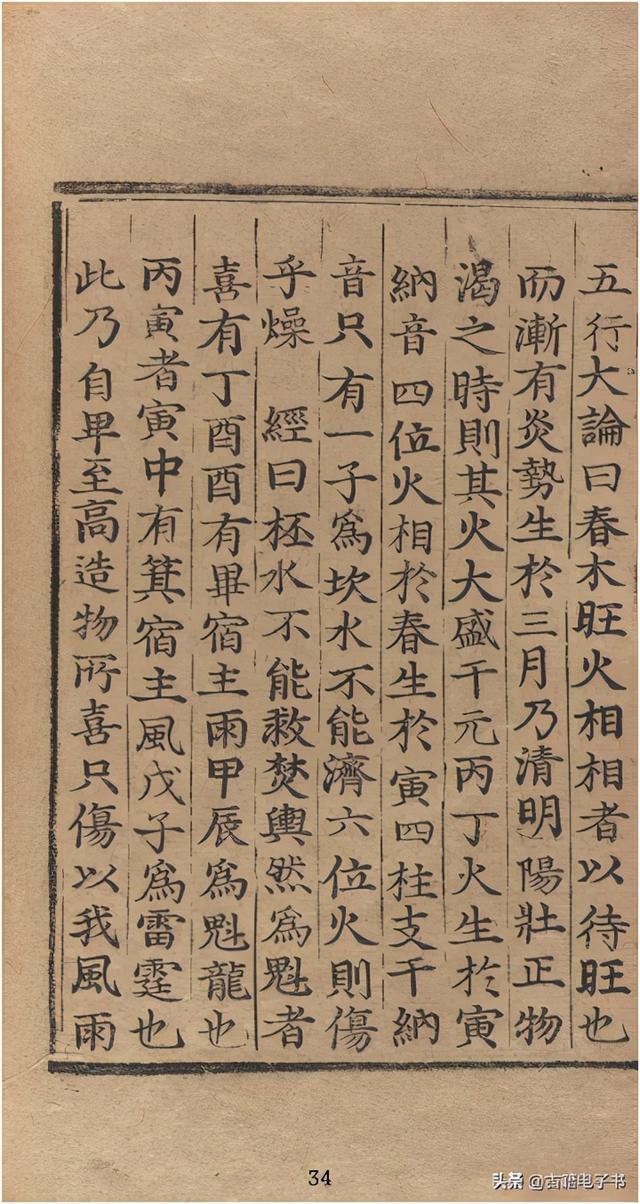 五行大論曰春木旺火相相者以待旺也
而漸有炎勢生於三月乃清明陽壯正物
渴之時則其火大盛干元丙丁火生於寅
納音四位火相於春生於寅四柱支干納
音只有一子爲坎水不能濟六位火則傷
乎燥　經曰杯水不能救焚輿然爲魁者
喜有丁酉酉有畢宿主雨甲辰爲魁龍也
丙寅者寅中有箕宿主風戊子爲雷霆也
此乃自卑至高造物所喜只傷以我風雨
34
头条 @古籍电子书